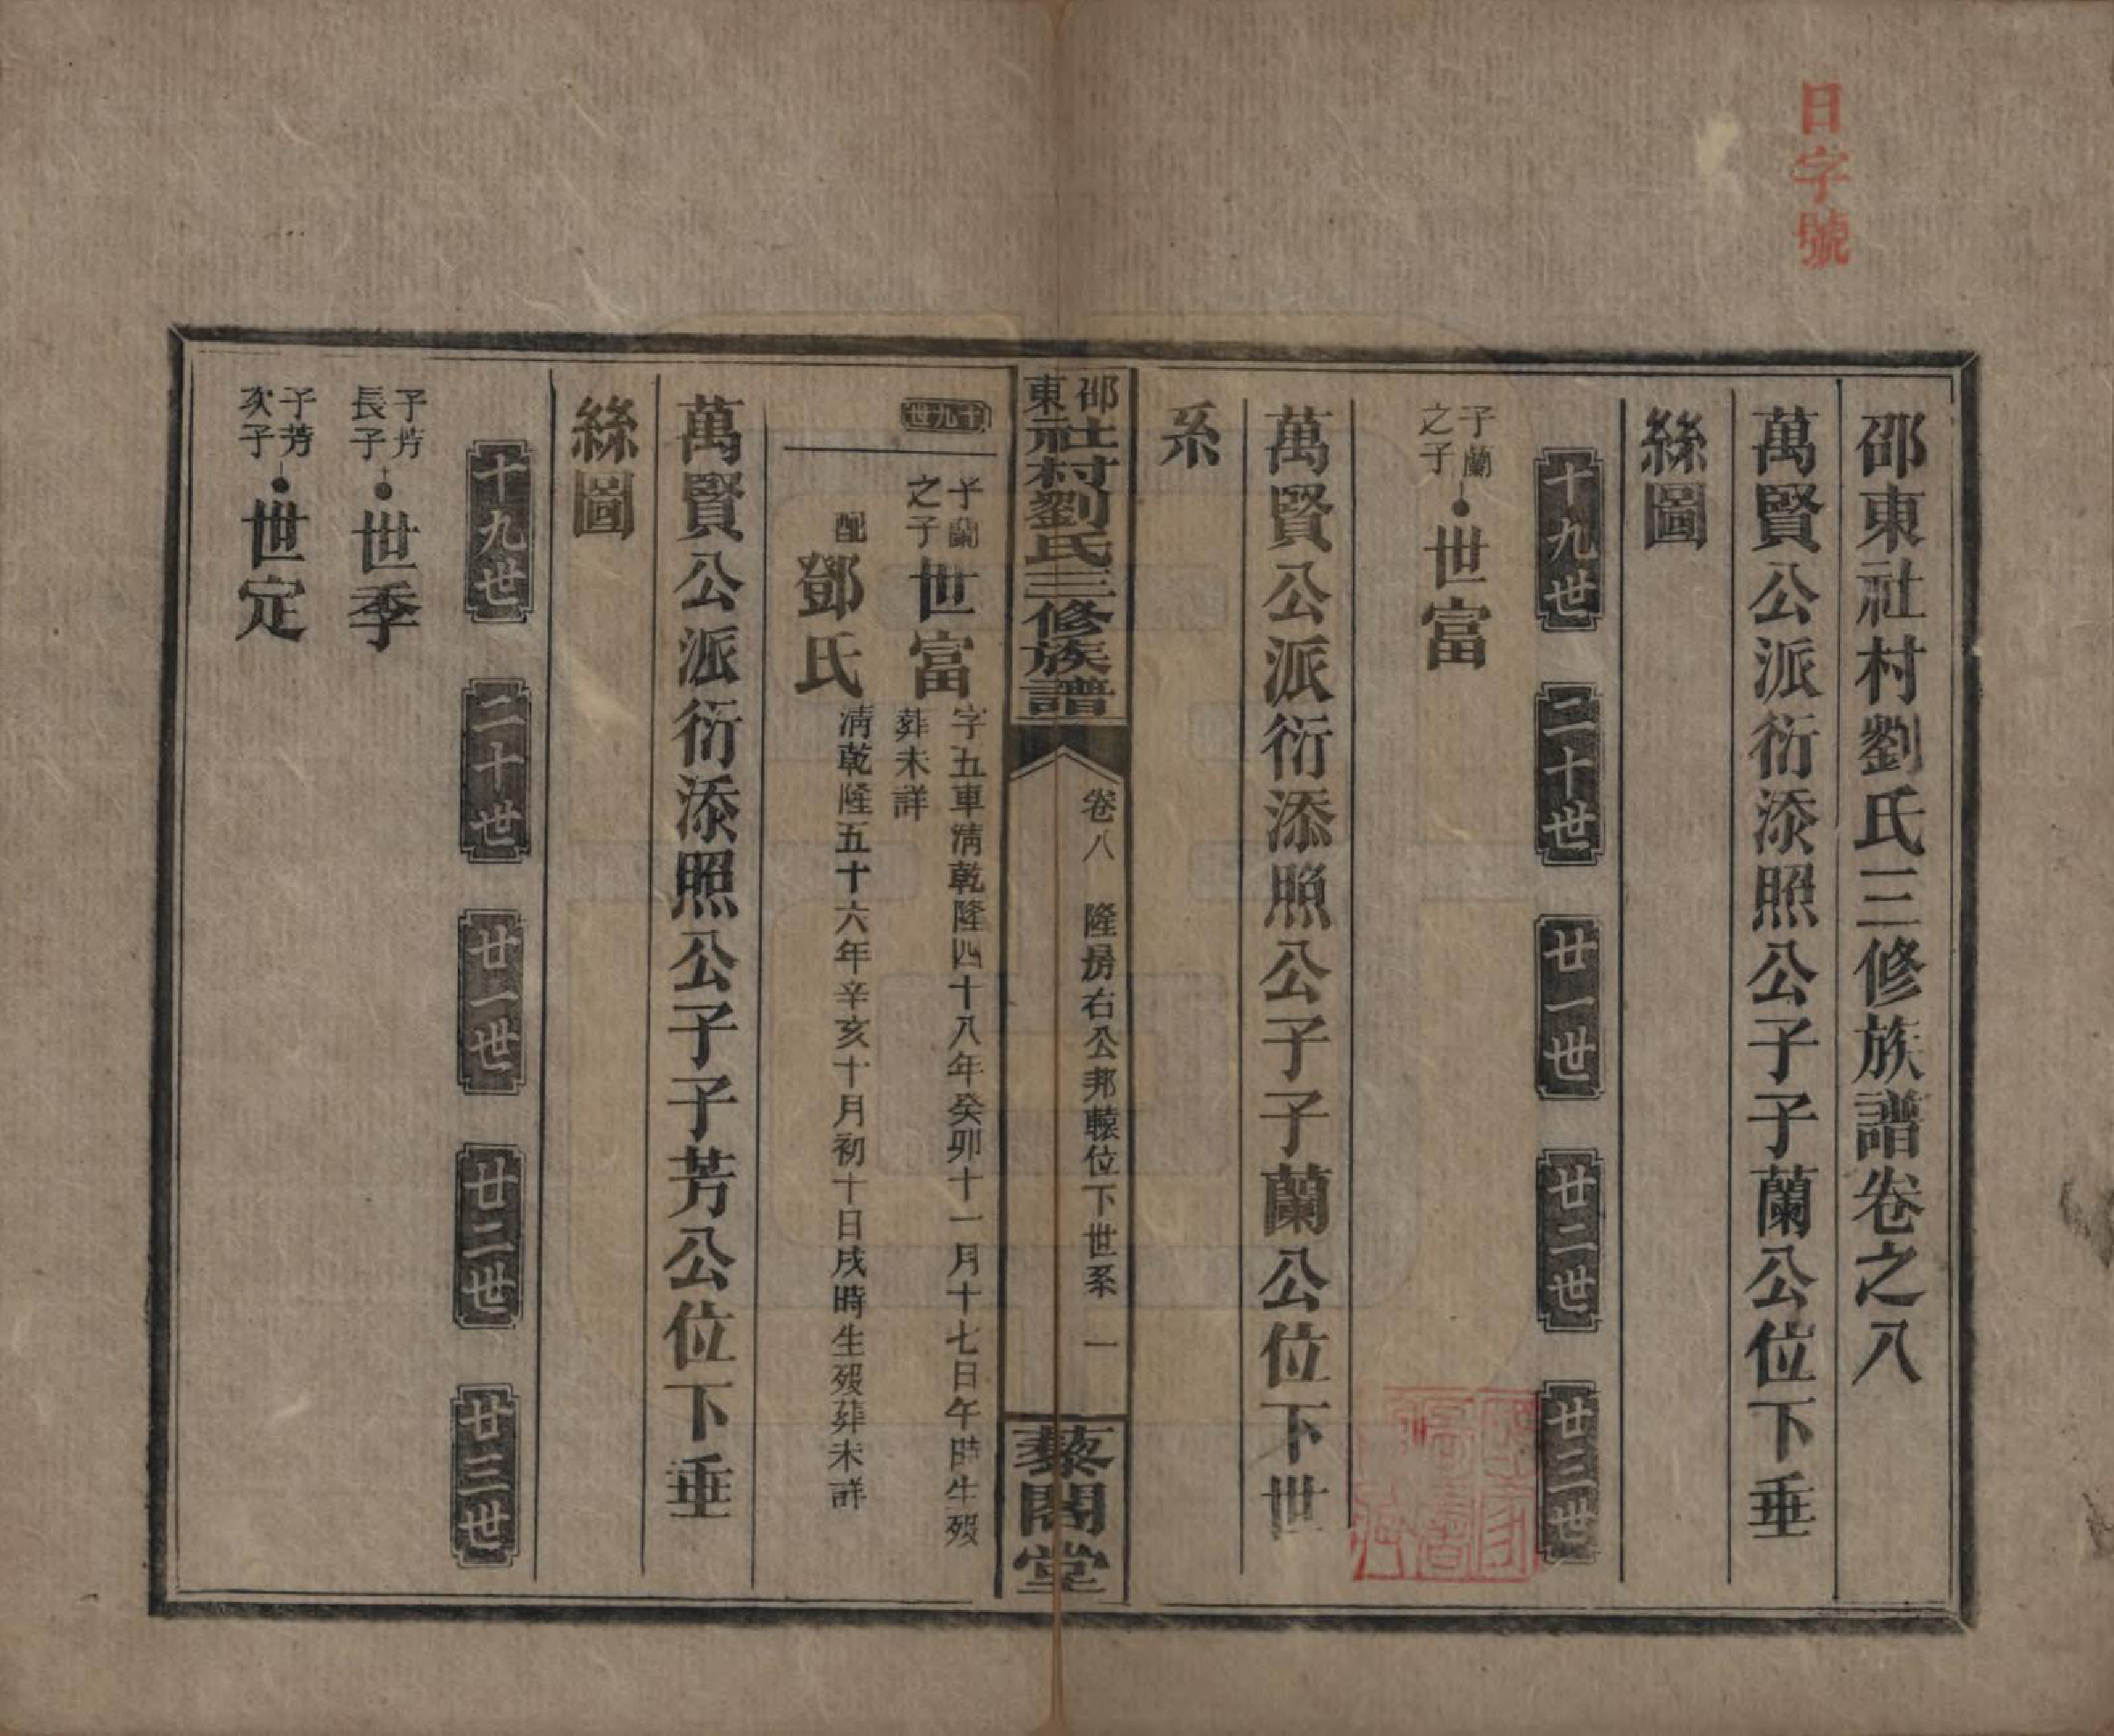 日字號
邵東社村劉氏三修族譜卷之八
萬賢公派衍添照公子子蘭公位下垂
絲圖
十九世 二十世 廿一世 廿二世 廿三世
子蘭之子 世富
萬賢公派衍添照公子子蘭公位下世
系
邵東社村劉氏三修族譜 卷八 隆房右公邦轅位下世系 一 藜閣堂
十九世
子蘭之子 世富 字五車清乾隆四十八年癸卯十一月十七日午時生歿
葬未詳
配鄧氏 清乾隆五十六年辛亥十月初十日戌時生歿葬未詳
萬賢公派衍添照公子子芳公位下垂
絲圖
十九世 二十世 廿一世 廿二世 廿三世
子芳長子 世季
子芳次子 世定